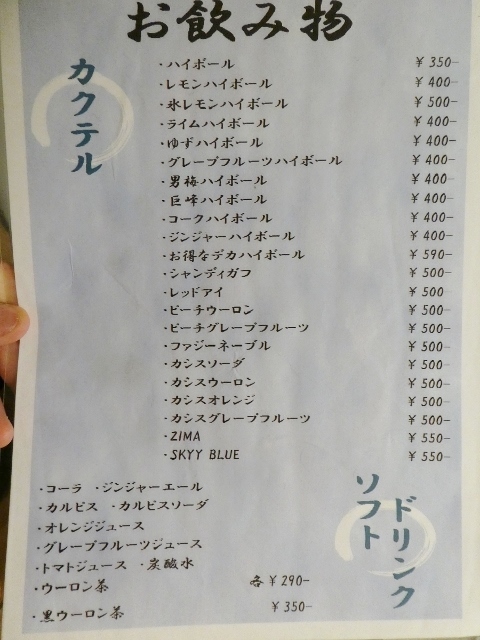 お飲み物
カクテル
・ハイボール ¥350-
・レモンハイボール ¥400-
・氷レモンハイボール ¥500-
・ライムハイボール ¥400-
・ゆずハイボール ¥400-
・グレープフルーツハイボール ¥400-
・男梅ハイボール ¥400-
・巨峰ハイボール ¥400-
・コークハイボール ¥400-
・ジンジャーハイボール ¥400-
・お得なデカハイボール ¥590-
・シャンディガフ ¥500-
・レッドアイ ¥500-
・ピーチウーロン ¥500-
・ピーチグレープフルーツ ¥500-
・ファジーネーブル ¥500-
・カシスソーダ ¥500-
・カシスウーロン ¥500-
・カシスオレンジ ¥500-
・カシスグレープフルーツ ¥500-
・ZIMA ¥550-
・SKYY BLUE ¥550-
ソフト
ドリンク
・コーラ ・ジンジャーエール
・カルピス ・カルピスソーダ
・オレンジジュース
・グレープフルーツジュース
・トマトジュース ・炭酸水
・ウーロン茶 各¥290-
・黒ウーロン茶 ¥350-